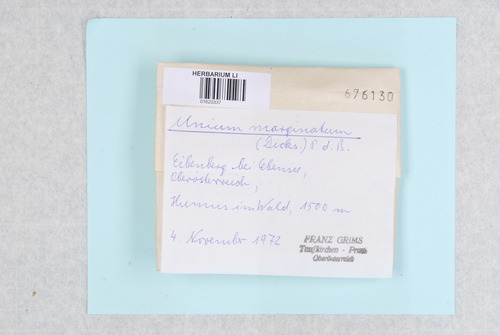 HERBARIUM LI
01620337
676130
Mnium marginatum
(Dicks.) P. d. B.
Eibenberg bei Ebensee,
Oberösterreich,
Humus im Wald, 1500 m
4. November 1972
FRANZ GRIMS
Taufkirchen - Pram
Oberösterreich